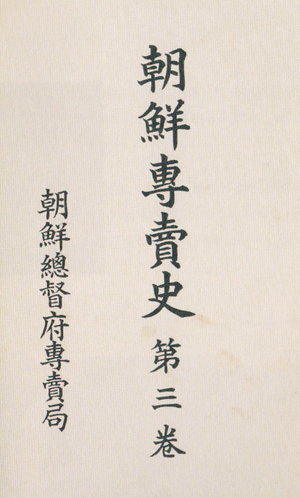 朝鮮專賣史 第三卷
朝鮮總督府專賣局